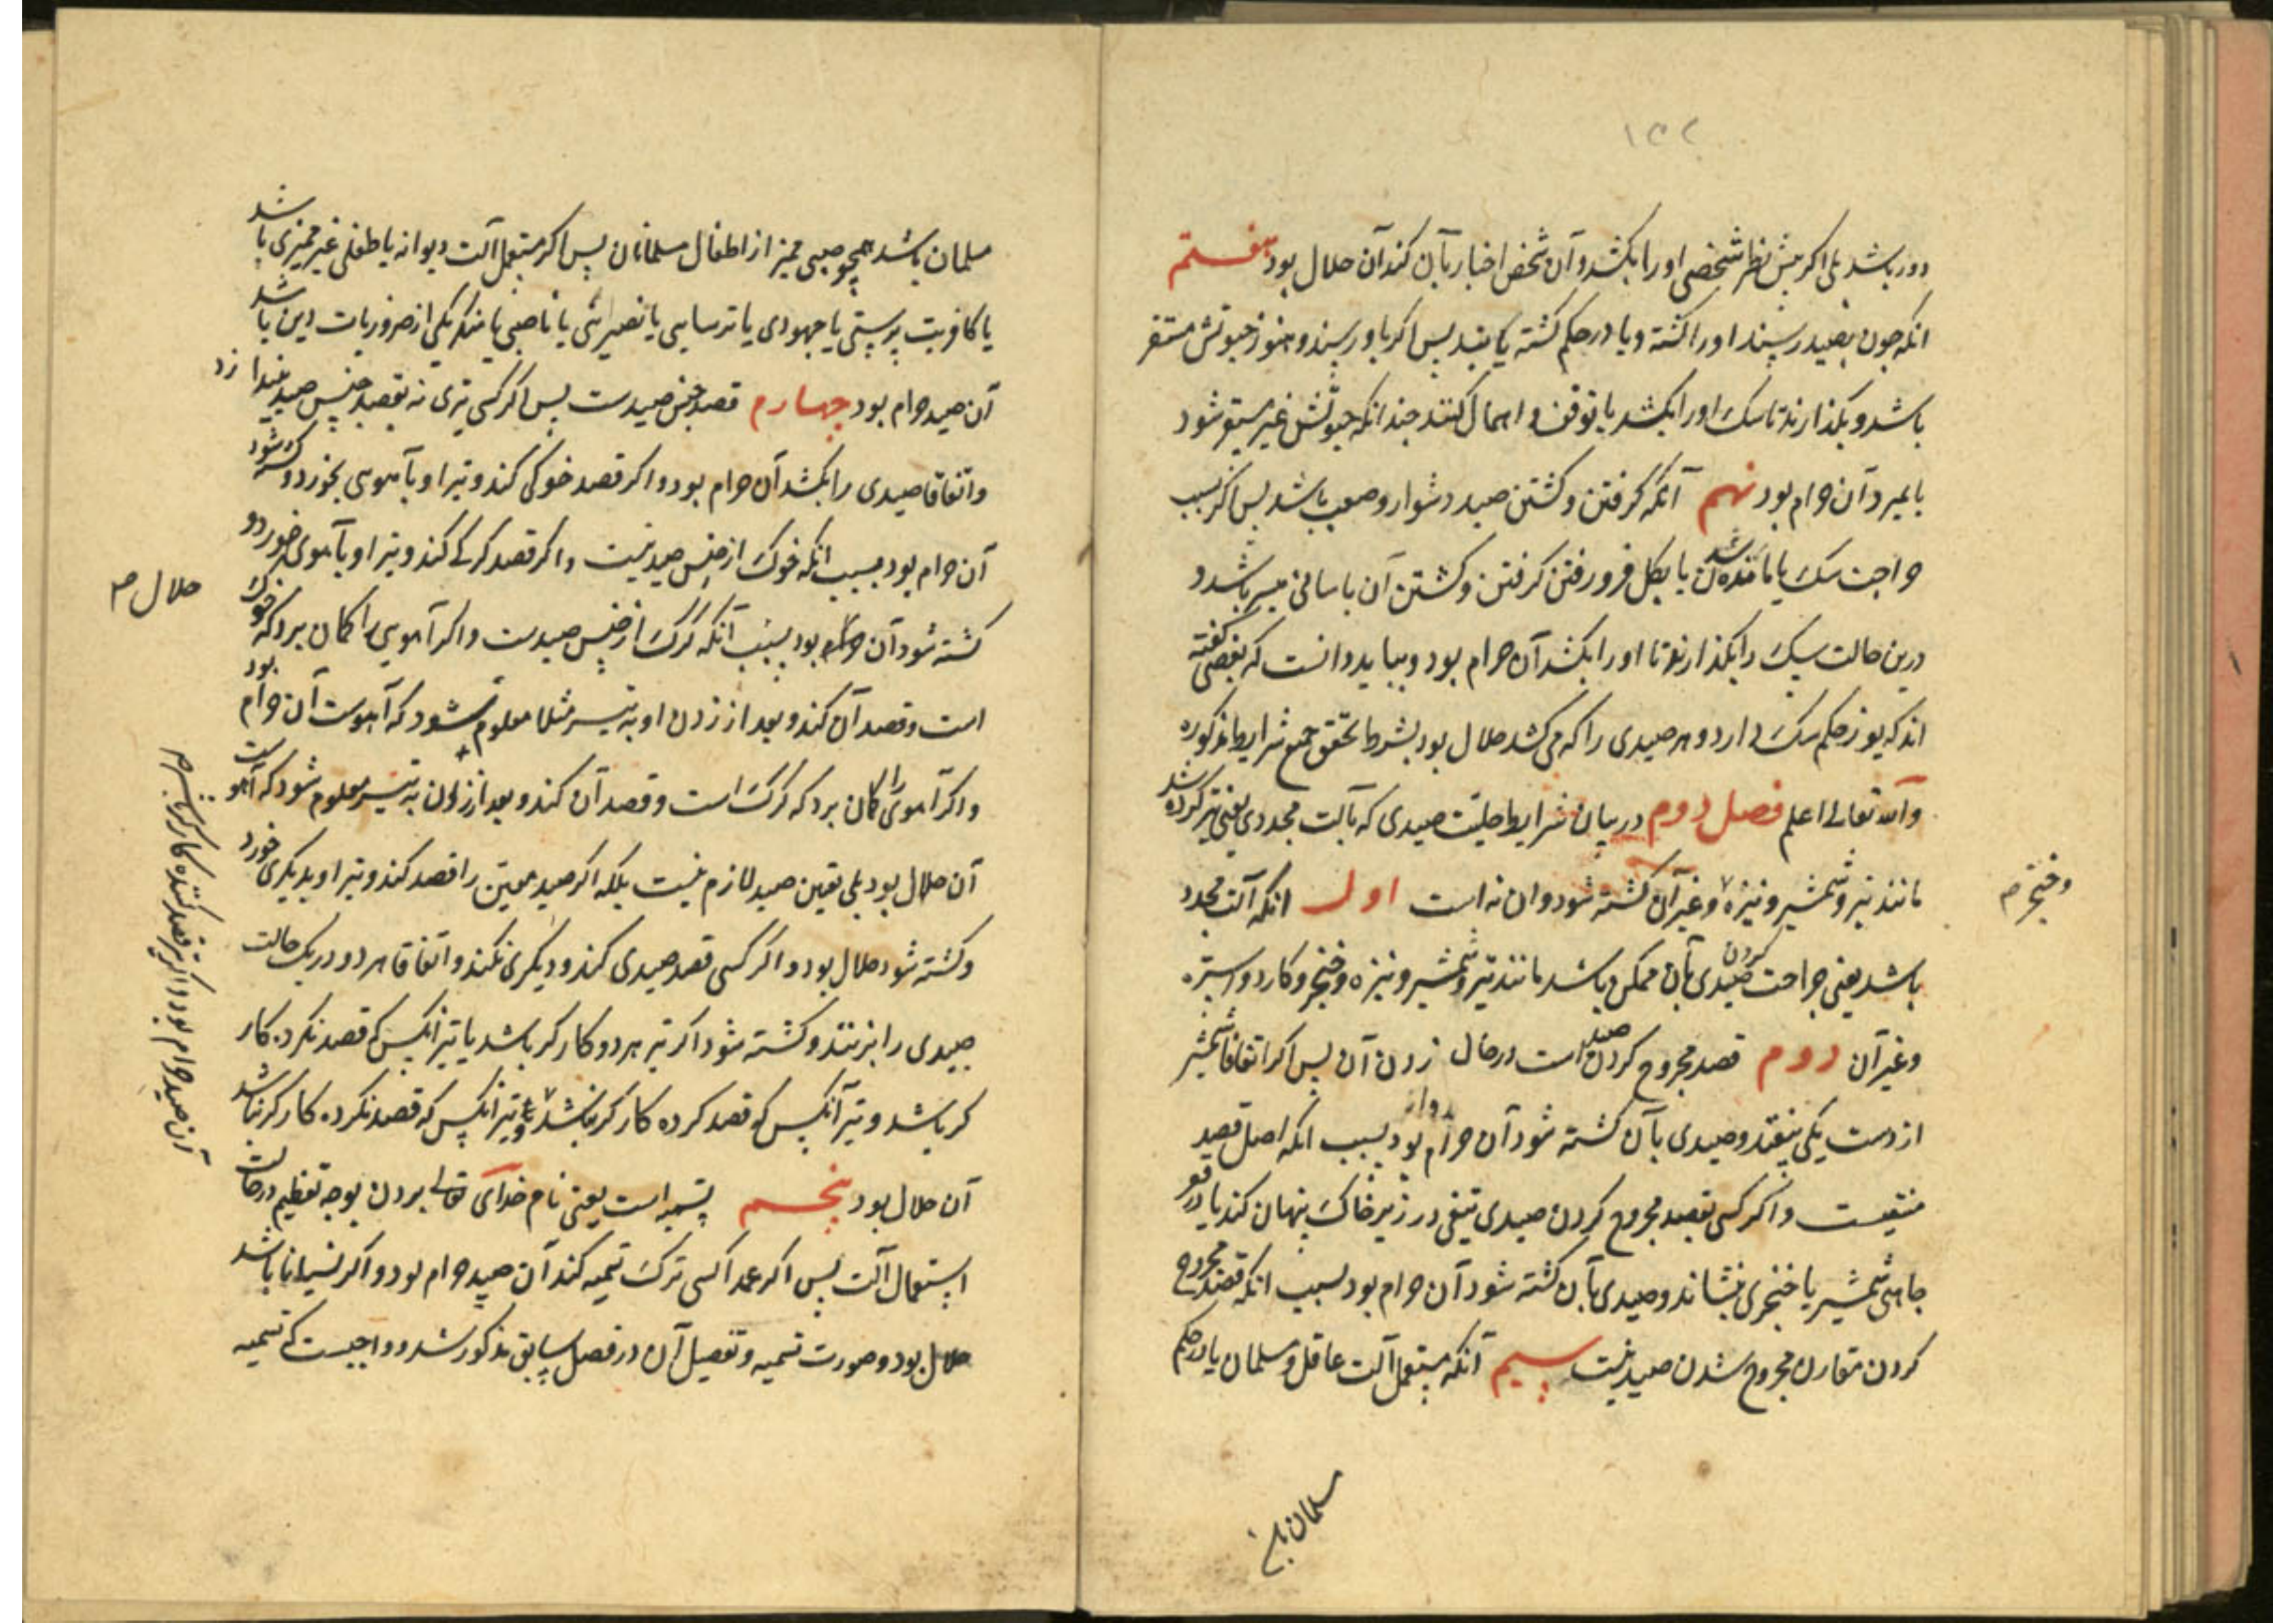 ۱۵۲
دور باشد بلی اکر پیش نظر شخصی اورا بکشد و آن شخص اخبار بآن کند آن حلال بود هفتم
انکه چون بصید رسند اورا کشته و یا در حکم کشته یابند پس اکر باو رسند و هنوز حیوتش مستقر
باشد و بکذارند تا سک اورا بکشد یا توقف و اهمال کنند چندانکه حیوتش غیر مستقر شود
یا بمیرد آن حرام بود نهم آنکه کرفتن و کشتن صید دشوار و صعب باشد پس اکر بسبب
جراحت سک یا مانده شدن یا بکل فرو رفتن کرفتن و کشتن آن باسانی میسر باشد و
درین حالت سک را بکذارند تا اورا بکشد آن حرام بود و بباید دانست که بعضی کفته
اند که یوز حکم سک دارد و هر صیدی را که می کشد حلال بود بشرط تحقق جمیع شرایط مذکوره
والله تعالی اعلم فصل دوم در بیان شرایط حلیت صیدی که بآلت محددی یعنی تیز کرده شد
مانند تیر و شمشیر و نیزه و غیر آن کشته شود و ان نه است اول انکه آلت محدد
وخنجر م
باشد یعنی جراحت کردن صیدی بآن ممکن باشد مانند تیر و شمشیر و نیزه و خنجر و کارد و استره
و غیر آن دوم قصد مجروح کردن صید است در حال زدن آن پس اکر اتفاقا شمشیر
از دست یکی بیفتد و صیدی بآن کشته شود آن حرام بود بسبب انکه اصل قصد
منتفیست و اکر کسی بقصد مجروح کردن صیدی تیغی در زیر خاک پنهان کند یا در قعر
چاهی شمشیر یا خنجری بنشاند و صیدی بآن کشته شود آن حرام بود بسبب انکه قصد مجروح
کردن مقارن مجروح شدن صید نیست سیم آنکه مستعمل آلت عاقل و مسلمان یا در حکم
مسلمان با
مسلمان باشد همچو صبی ممیز از اطفال مسلمانان پس اکر مستعمل آلت دیوانه یا طفلی غیر ممیزی باشد
یا کافر بت پرستی یا جهودی یا ترسایی یا نصیرئی یا ناصبی یا منکر یکی از ضروریات دین باشد
آن صید حرام بود چهارم قصد جنس صیدست پس اکر کسی تیری نه بقصد جنس صید بیندازد
و اتفاقا صیدی را بکشد آن حرام بود و اکر قصد خوکی کند و تیر او بآهوی بخورد و کشته شود
آن حرام بود بسبب انکه خوک از جنس صید نیست و اکر قصد کرکی کند و تیر او بآهوی خورد و
کشته شود آن بود بسبب آنکه کرک از جنس صیدست و اکر آهوی را کمان برد که خوک
حلال م
است و قصد آن کند و بعد از زدن او به تیر مثلا معلوم شود که آهوست آن حرام بود
و اکر آهوی را کمان برد که کرک است و قصد آن کند و بعد از زدن به تیر معلوم شود که آهوست
آن حلال بود بلی تعین صید لازم نیست بلکه اکر صید معین را قصد کند و تیر او بدیکری خورد
و کشته شود حلال بود و اکر کسی قصد صیدی کند و دیکری نکند و اتفاقا هر دو در یک حالت
صیدی را بزنند و کشته شود اکر تیر هر دو کارکر باشد یا تیر انکس که قصد نکرده کار
کر باشد و تیر آنکس که قصد کرده کارکر نباشد و تیر انکس که قصد نکرده کارکر نباشد
آن صید حرام بود و اکر تیر قصد کننده کارکر باشد م
آن حلال بود پنجم تسمیه است یعنی نام خدای تعالی بردن بوجه تعظیم در حالت
استعمال آلت پس اکر عمدا کسی ترک تسمیه کند آن صید حرام بود و اکر نسیانا باشد
حلال بود و صورت تسمیه و تفصیل آن در فصل سابق مذکور شد و واجبست که تسمیه